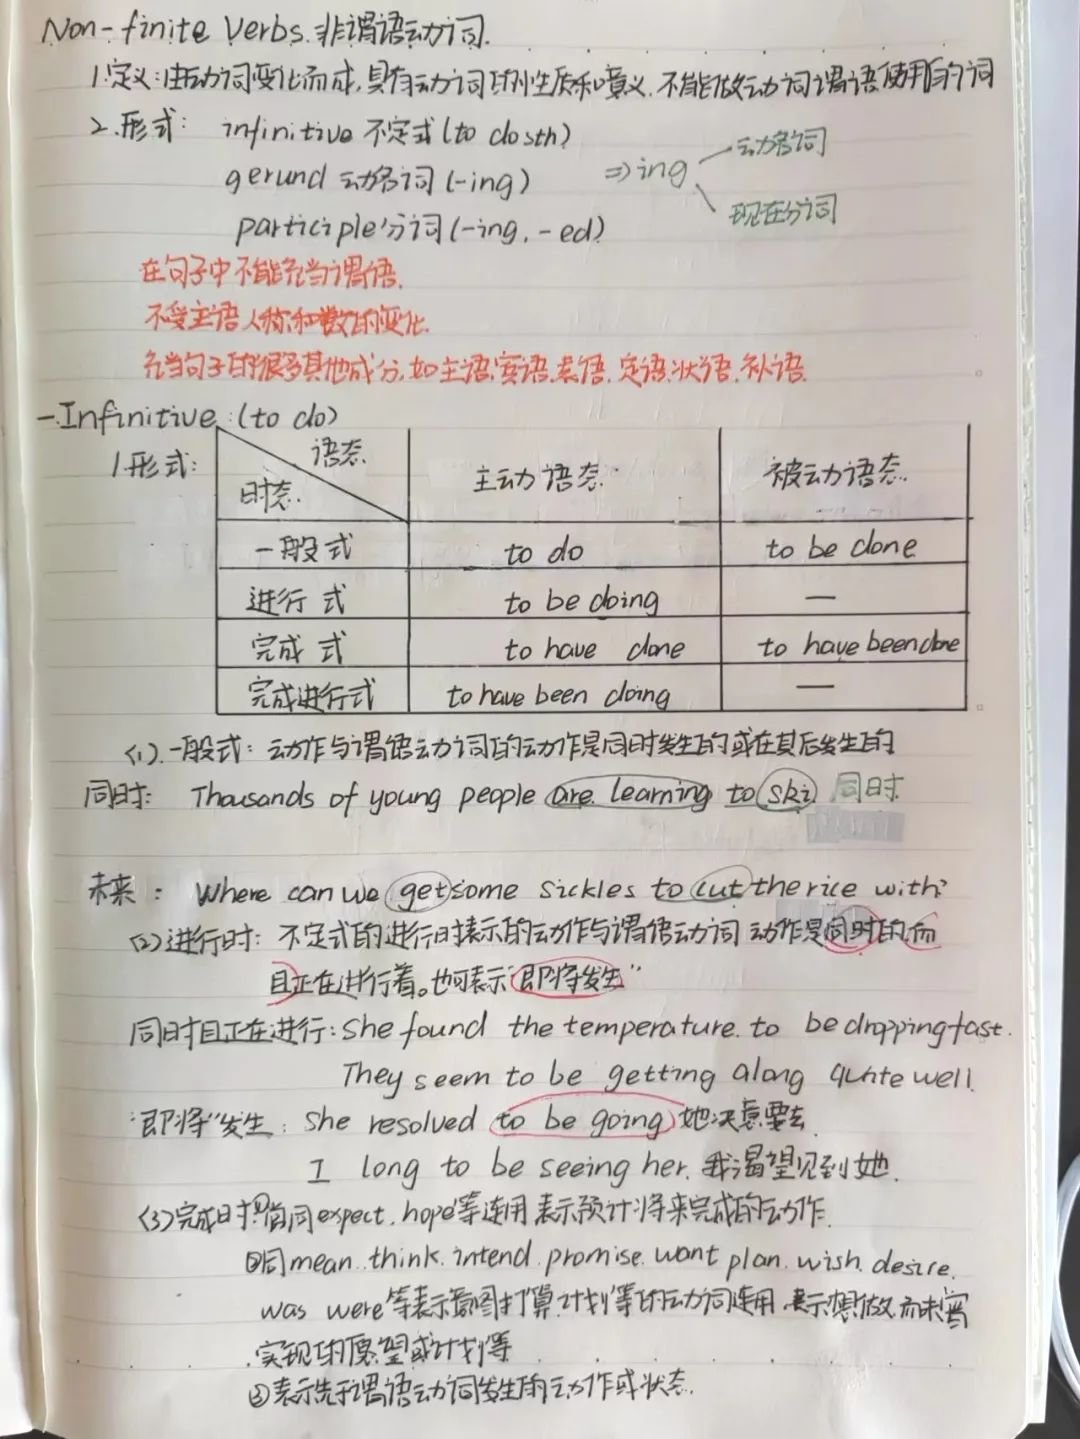 Non-finite Verbs.非谓语动词.
1.定义:由动词变化而成,具有动词的性质和意义.不能做动词谓语使用的词
2.形式: infinitive 不定式(to do sth)
gerund 动名词(-ing)
⇒ing 动名词
现在分词
participle分词(-ing,-ed)
在句子中不能充当谓语.
不受主语人称和数的变化.
充当句子的很多其他成分,如主语.宾语.表语.定语.状语.补语.
一.Infinitive:(to do)
1.形式: 语态 时态 主动语态 被动语态
一般式 to do to be done
进行式 to be doing —
完成式 to have done to have been done
完成进行式 to have been doing —
(1).一般式:动作与谓语动词的动作是同时发生的或在其后发生的
同时: Thousands of young people are learning to ski. 同时
未来: Where can we get some sickles to cut the rice with?
(2)进行时: 不定式的进行时表示的动作与谓语动词动作是同时的,而
且正在进行着。也可表示"即将发生"
同时且正在进行:She found the temperature to be dropping fast.
They seem to be getting along quite well.
"即将"发生: She resolved to be going 她决意要去.
I long to be seeing her. 我渴望见到她.
(3)完成时:①同expect.hope等连用表示预计将来完成的动作.
②同mean.think.intend.promise.want plan.wish.desire.
was were等表示意图打算计划等的动词连用.表示想做而未
实现的愿望或计划等
③表示先于谓语动词发生的动作或状态.